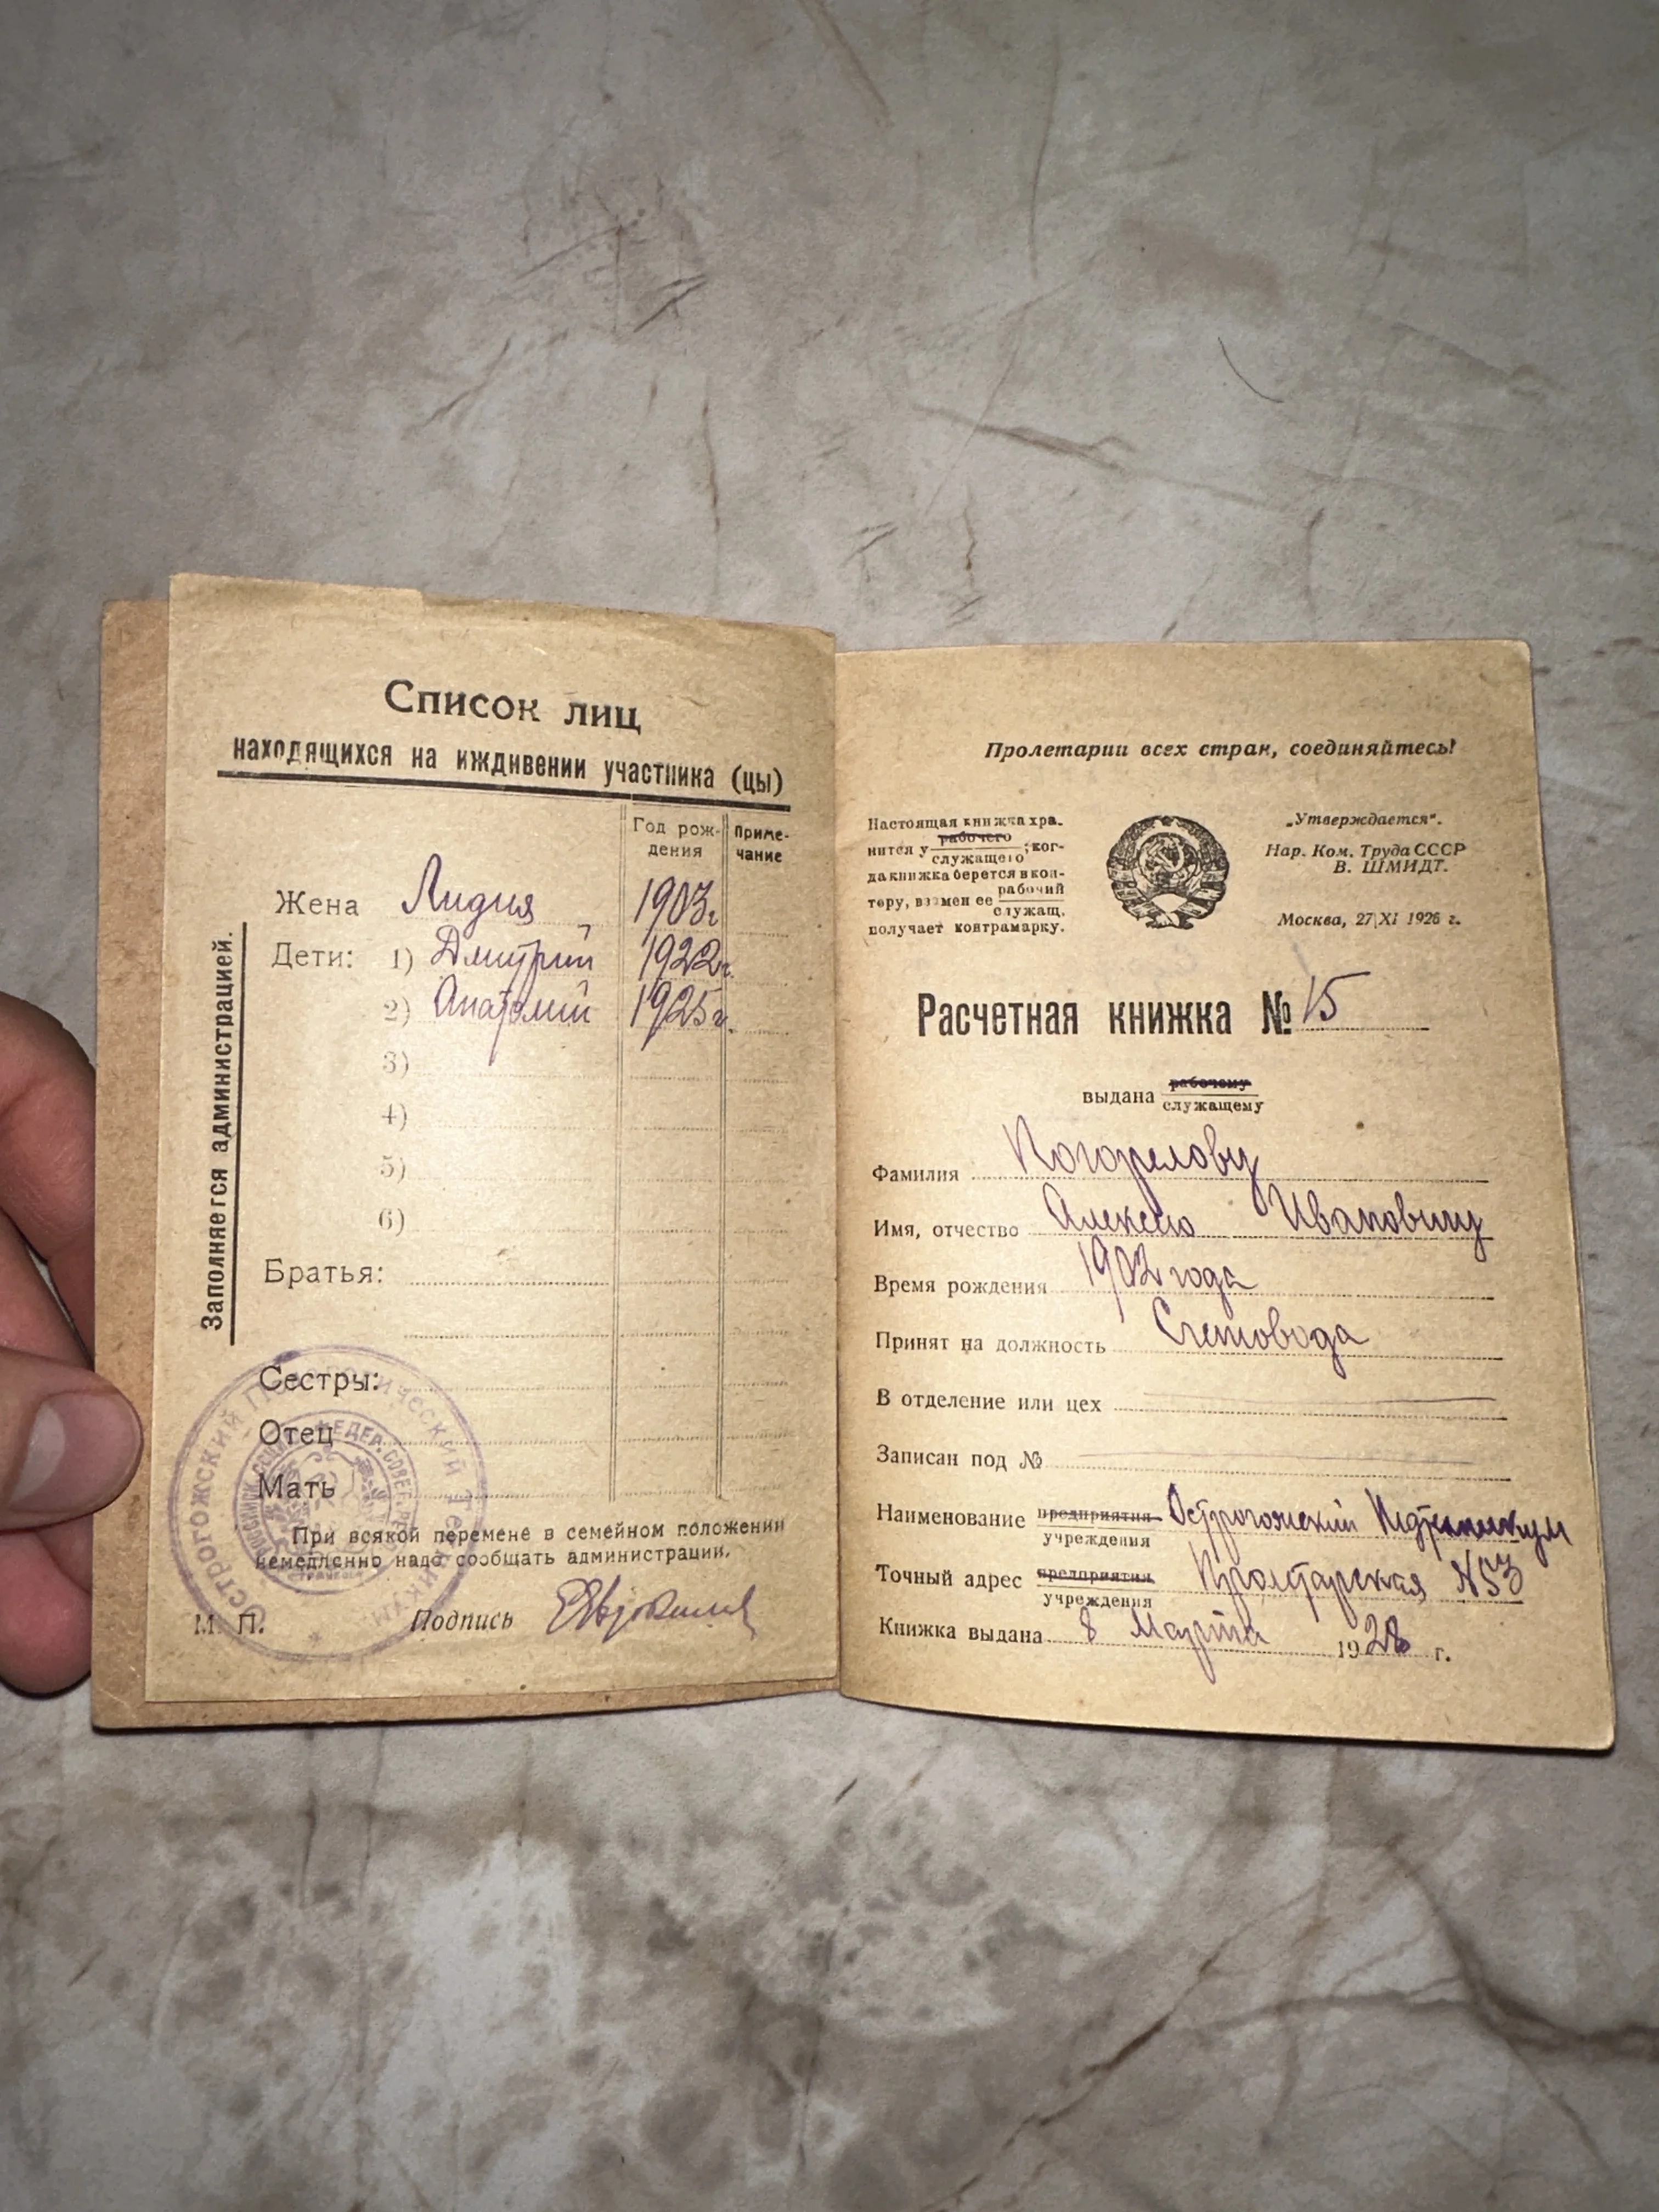 Список лиц
находящихся на иждивении участника (цы)
Год рож-
дения
Приме-
чание
Заполняется администрацией.
Жена Лидия 1903г
Дети: 1) Дмитрий 1922г.
2) Анатолий 1925г.
3)
4)
5)
6)
Братья:
Сестры:
Отец
Мать
При всякой перемене в семейном положении
немедленно надо сообщать администрации.
М. П. Подпись
Острогожский Педагогический Техникум
Пролетарии всех стран, соединяйтесь!
Настоящая книжка хра-
рабочего
нится у ; ког-
служащего
да книжка берется в кон-
рабочий
тору, взамен ее
служащ.
получает контрамарку.
„Утверждается".
Нар. Ком. Труда СССР
В. ШМИДТ.
Москва, 27|XI 1926 г.
Расчетная книжка № 15
рабочему
выдана
служащему
Фамилия Погорелову
Имя, отчество Алексею Ивановичу
Время рождения 1902 года
Принят на должность Счетовода
В отделение или цех
Записан под №
Наименование предприятия Острогожский Педтехникум
учреждения
Точный адрес предприятия Пролетарская №53
учреждения
Книжка выдана 8 Марта 1928 г.